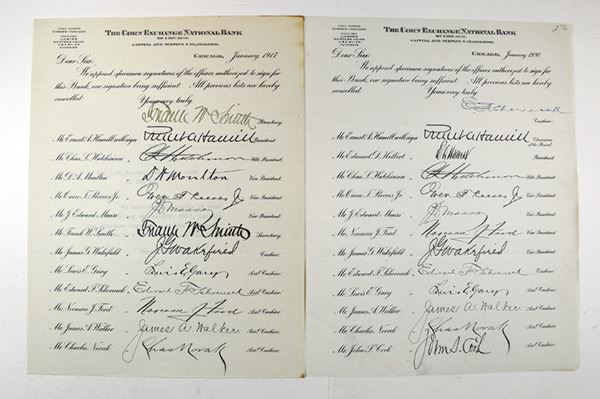 THE CORN EXCHANGE NATIONAL BANK
OF CHICAGO,
CAPITAL AND SURPLUS $10,000,000.
CHICAGO, January 1917
Dear Sir:
We append specimen signatures of the officers authorized to sign for
this Bank, one signature being sufficient. All previous lists are hereby
cancelled.
Yours very truly,
Frank W Smith
Secretary.
Mr. Ernest A. Hamill will sign Ernest A. Hamill President.
Mr. Chas. L. Hutchinson Ch L Hutchinson Vice President.
Mr. D. A. Moulton D A Moulton Vice President.
Mr. Owen T. Reeves Jr. Owen T Reeves Jr Vice President.
Mr. J. Edward Maass J E Maass Vice President.
Mr. Frank W. Smith Frank W Smith Secretary.
Mr. James G. Wakefield J G Wakefield Cashier.
Mr. Lewis E. Gary Lewis E. Gary Asst. Cashier.
Mr. Edward F. Schoeneck Edward F Schoeneck Asst. Cashier.
Mr. Norman J. Ford Norman J Ford Asst. Cashier.
Mr. James A. Walker James A. Walker Asst. Cashier.
Mr. Charles Novak Chas Novak Asst. Cashier.
THE CORN EXCHANGE NATIONAL BANK
OF CHICAGO,
CHICAGO, January 1920
Dear Sir:
We append specimen signatures of the officers authorized to sign for
this Bank, one signature being sufficient. All previous lists are hereby
cancelled.
Yours very truly,
Cashier.
Mr. Ernest A. Hamill will sign Ernest A. Hamill Chairman
of the Board.
Mr. Edmund D. Hulbert President.
Mr. Chas. L. Hutchinson Ch L Hutchinson Vice President.
Mr. Owen T. Reeves Jr. Owen T Reeves Jr Vice President.
Mr. J. Edward Maass J E Maass Vice President.
Mr. Norman J. Ford Norman J Ford Vice President.
Mr. James G. Wakefield J G Wakefield Vice President.
Mr. Edward F. Schoeneck Edward F Schoeneck Cashier.
Mr. Lewis E. Gary Lewis E. Gary Asst. Cashier.
Mr. James A. Walker James A. Walker Asst. Cashier.
Mr. Charles Novak Chas Novak Asst. Cashier.
Mr. John S. Cook John S. Cook Asst. Cashier.